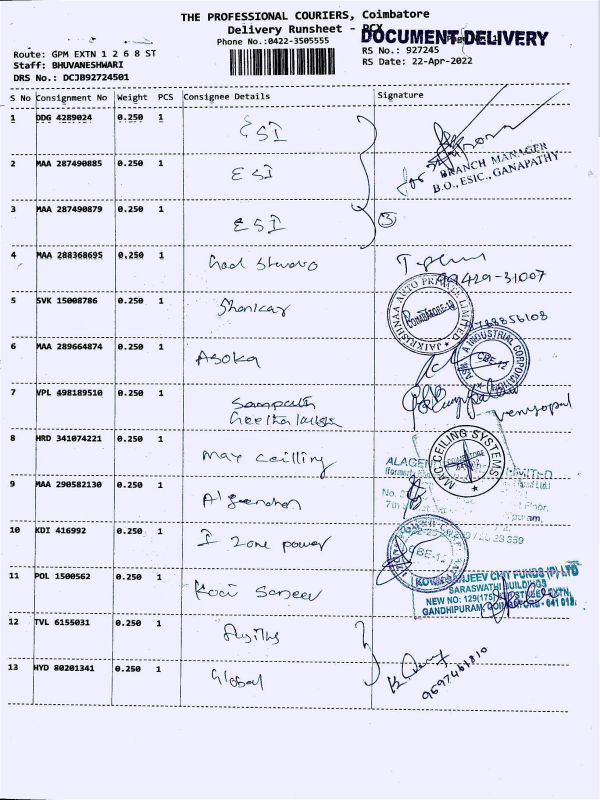 THE PROFESSIONAL COURIERS, Coimbatore
Delivery Runsheet - PCX
DOCUMENT DELIVERY
Phone No.:0422-3505555
Route: GPM EXTN 1 2 6 8 ST
RS No.: 927245
Staff: BHUVANESHWARI
RS Date: 22-Apr-2022
DRS No.: DCJB92724501
S No Consignment No Weight PCS Consignee Details Signature
1 DDG 4289024 0.250 1 ESI
BRANCH MANAGER
B.O., ESIC., GANAPATHY
2 MAA 287490885 0.250 1 ESI
3 MAA 287490879 0.250 1 ESI
3
4 MAA 288368695 0.250 1
99429-31007
JAIKRISHNAA AUTO PRIVATE LIMITED
5 SVK 15008786 0.250 1 Shankar
6 MAA 289664874 0.250 1 Asoka
INDUSTRIAL CORPORATION
CBE-12
7 VPL 498189510 0.250 1 Sampath
Venugopal
8 HRD 341074221 0.250 1 Max ceilling
MAC CEILING SYSTEMS
9 MAA 290582130 0.250 1
10 KDI 416992 0.250 1 I zone power
CBE-12
11 POL 1500562 0.250 1
CHIT FUNDS (P) LTD
SARASWATHI BUILDINGS
NEW NO: 129(175)
GANDHIPURAM, COIMBATORE - 641 012.
12 TVL 6155031 0.250 1
13 HYD 80201341 0.250 1 Global